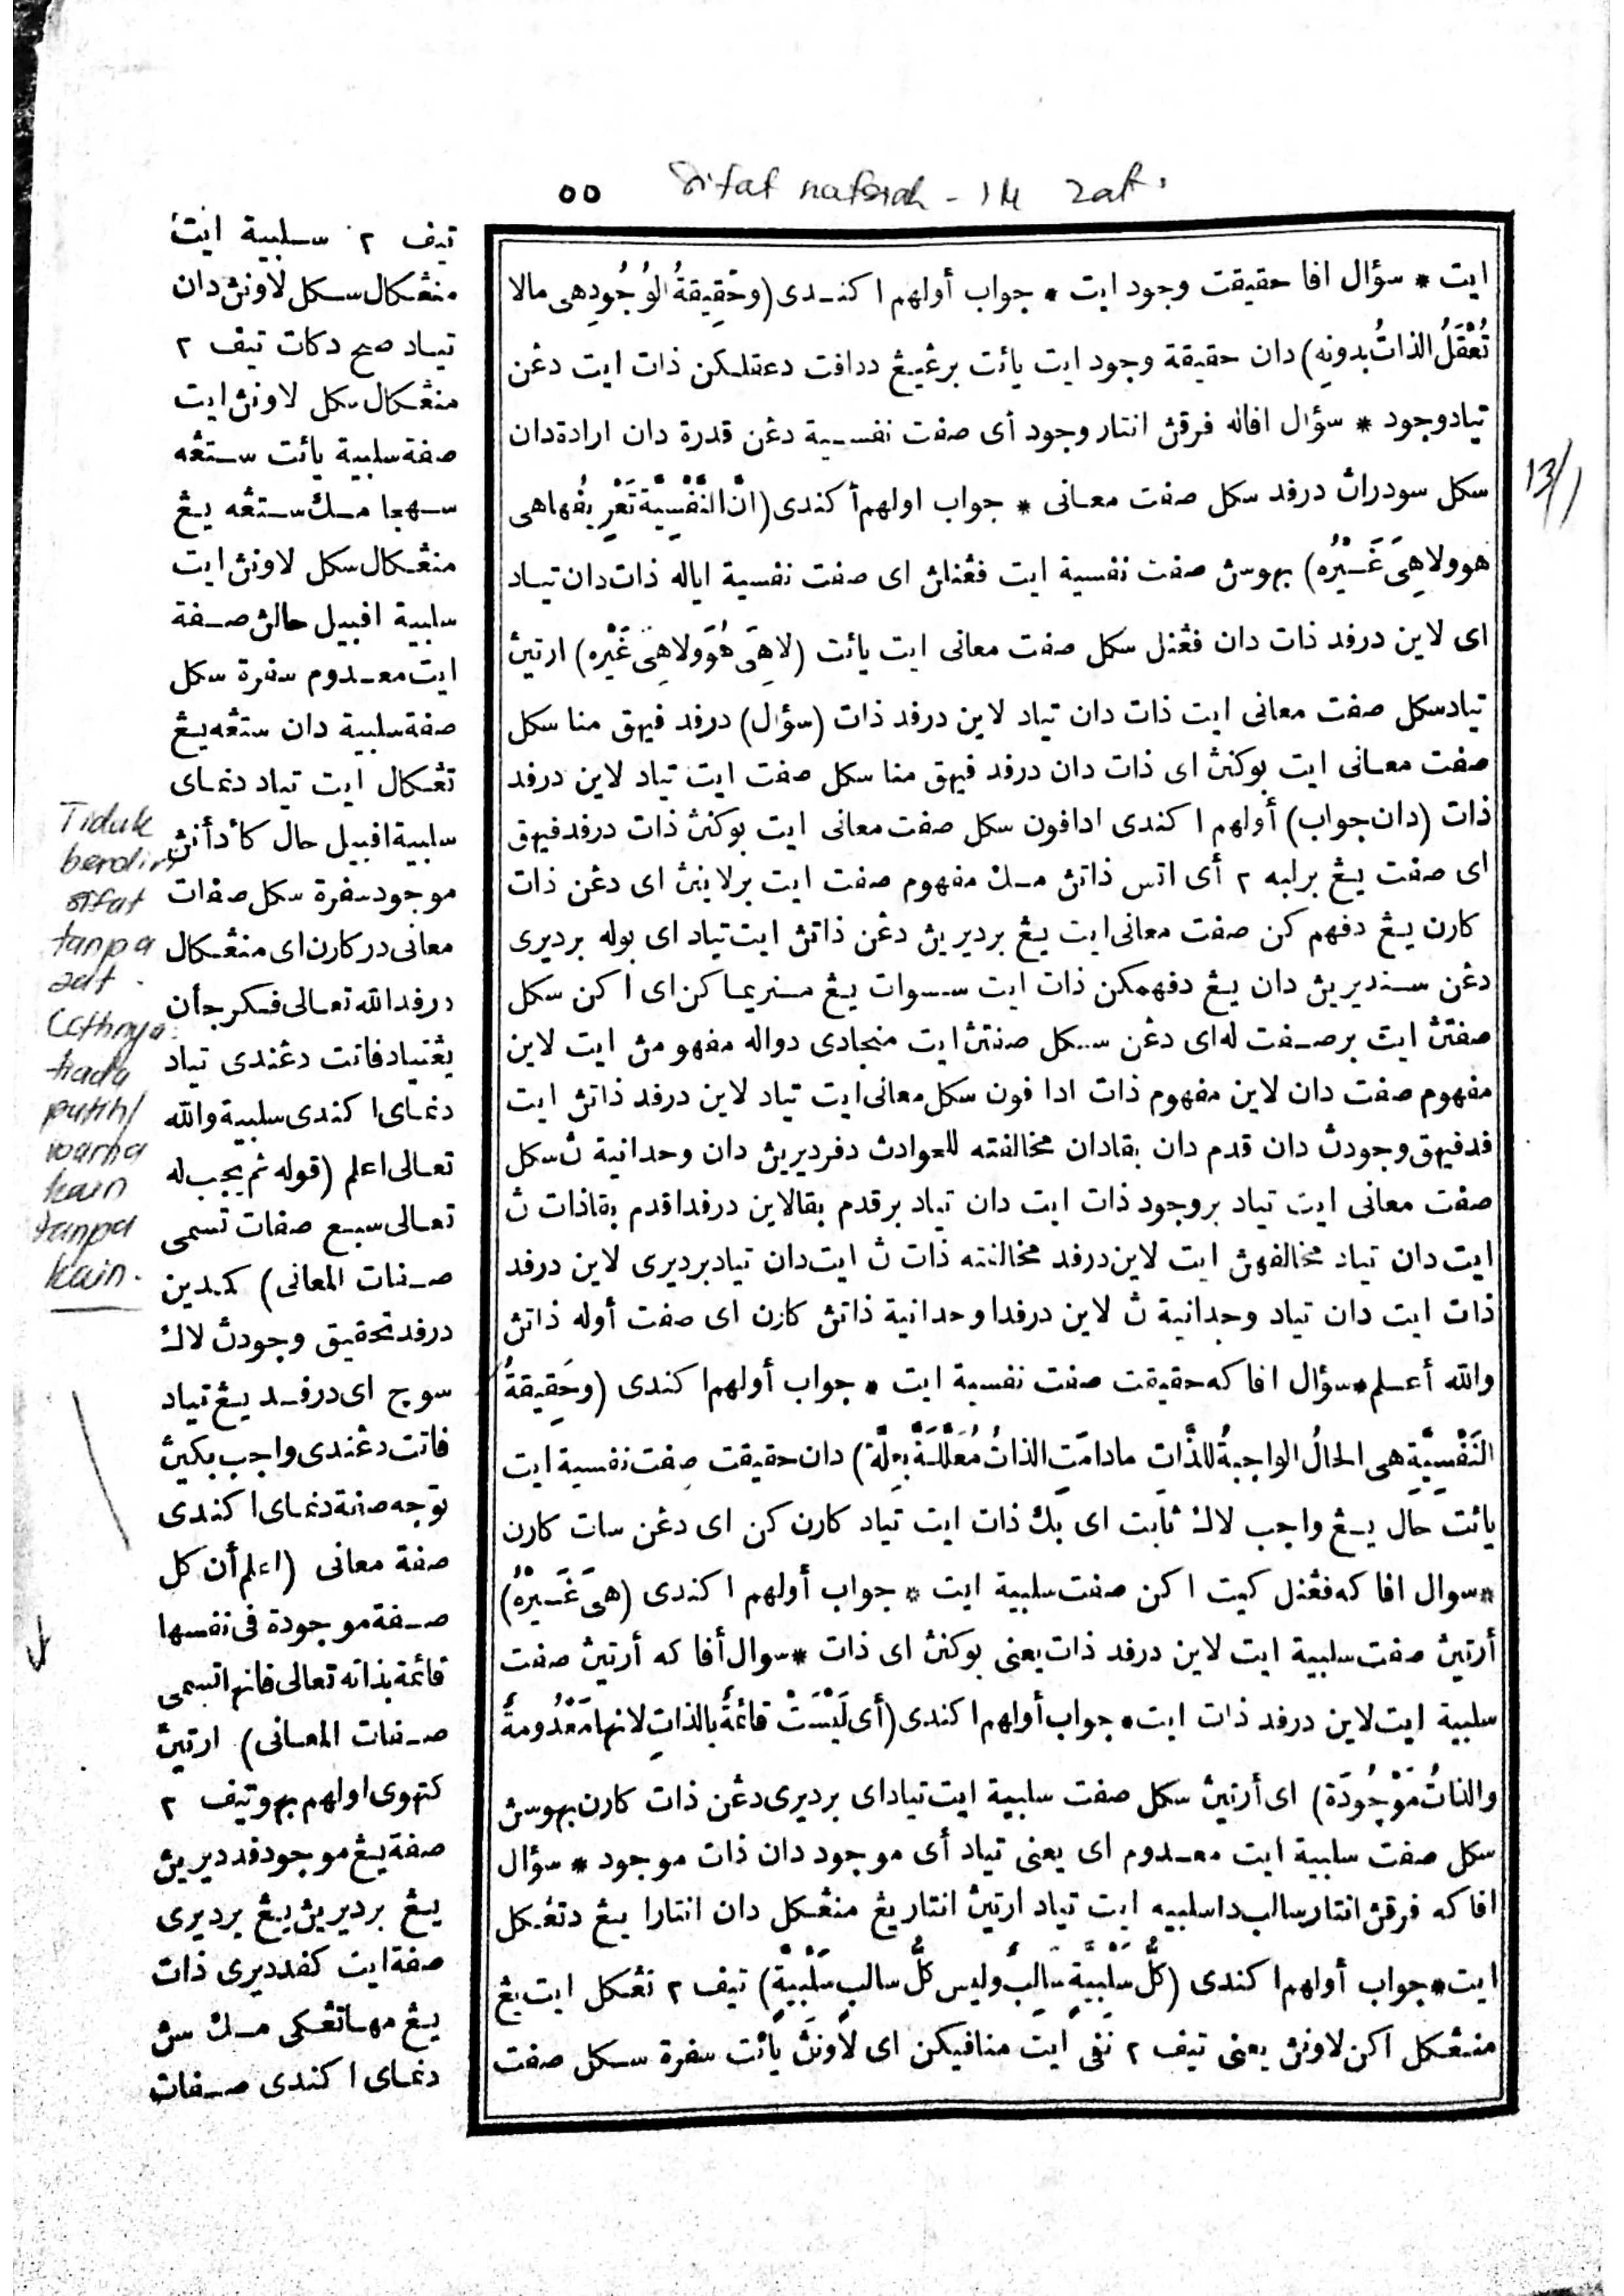 ٥٥ Sifat nafsiah - 14 zat.
ايت * سؤال افا حقيقت وجود ايت * جواب أولهم ا كندى (وحَقِيقةُ الوُجُودِ هى مالا
تُعْقَلُ الذاتُ بدونِهِ) دان حقيقة وجود ايت يائت برڠييڠ ددافت دعقلكن ذات ايت دڠن
تياد وجود * سؤال افاله فرقڽ انتار وجود أى صفت نفسية دڠن قدرة دان ارادة دان
سكل سودراڽ درفد سكل صفت معانى * جواب اولهم أ كندى (انّ النَّفْسِيَّةَ تَعْرِيفُها هى
هو ولا هِىَ غَيْرُه) بهوسڽ صفت نفسية ايت فڠنلڽ اى صفت نفسية اياله ذات دان تياد
اى لاين درفد ذات دان فڠنل سكل صفت معانى ايت يائت (لا هِىَ هُوَ ولا هِىَ غَيْرُه) ارتيڽ
تياد سكل صفت معانى ايت ذات دان تياد لاين درفد ذات (سؤال) درفد فيهق منا سكل
صفت معانى ايت بوكنڽ اى ذات دان درفد فيهق منا سكل صفت ايت تياد لاين درفد
ذات (دان جواب) أولهم ا كندى ادافون سكل صفت معانى ايت بوكنڽ ذات درفد فيهق
اى صفت يڠ برلبه ٢ أى اتس ذاتڽ مك مفهوم صفت ايت برلاينڽ اى دڠن ذات
كارن يڠ دفهم كن صفت معانى ايت يڠ برديريڽ دڠن ذاتڽ ايت تياد اى بوله برديرى
دڠن سنديريڽ دان يڠ دفهمكن ذات ايت سسوات يڠ منريما كن اى ا كن سكل
صفتڽ ايت برصفت له اى دڠن سكل صفتڽ ايت منجادى دواله مفهومڽ ايت لاين
مفهوم صفت دان لاين مفهوم ذات ادا فون سكل معانى ايت تياد لاين درفد ذاتڽ ايت
فد فيهق وجودڽ دان قدم دان بقا دان مخالفته للحوادث دفرديريڽ دان وحدانية ڽ سكل
صفت معانى ايت تياد بر وجود ذات ايت دان تياد برقدم بقا لاين درفدا قدم بقا ذات ڽ
ايت دان تياد مخالفهڽ ايت لاين درفد مخالفته ذات ڽ ايت دان تياد برديرى لاين درفد
ذات ايت دان تياد وحدانية ڽ لاين درفدا وحدانية ذاتڽ كارن اى صفت أوله ذاتڽ
والله أعلم * سؤال افا كه حقيقت صفت نفسية ايت * جواب أولهم ا كندى (وحَقِيقةُ
النَفْسِيَّةِ هى الحالُ الواجبةُ للذّاتِ مادامَتِ الذاتُ مُعَلَّلَةً بِعِلَّة) دان حقيقت صفت نفسية ايت
يائت حال يڠ واجب لاݢ ثابت اى بݢ ذات ايت تياد كارن كن اى دڠن سات كارن
* سوال افا كه فڠنل كيت ا كن صفت سلبية ايت * جواب أولهم ا كندى (هىَ غَيْرُهُ)
أرتيڽ صفت سلبية ايت لاين درفد ذات يعنى بوكنڽ اى ذات * سوال أفا كه أرتيڽ صفت
سلبية ايت لاين درفد ذات ايت * جواب أولهم ا كندى (أى لَيْسَتْ قائمَةً بالذاتِ لانها مَعْدُومةٌ
والذاتُ مَوْجُودَة) اى أرتيڽ سكل صفت سلبية ايت تياد اى برديرى دڠن ذات كارن بهوسڽ
سكل صفت سلبية ايت معدوم اى يعنى تياد أى موجود دان ذات موجود * سؤال
افا كه فرقڽ انتار سالب دا سلبيه ايت تياد ارتيڽ انتار يڠ منڠكل دان انتارا يڠ دتڠكل
ايت * جواب أولهم ا كندى (كلُّ سَلْبِيَّةٍ سَالِبٌ وليس كلُّ سالبٍ سَلْبِيَّةٍ) تيف ٢ تڠكل ايت يڠ
منڠكل اكن لاونڽ يعنى تيف ٢ نفى ايت منافيكن اى لاونڽ يائت سفرة سكل صفت
تيف ٢ سلبية ايت
منڠكال سكل لاونڽ دان
تياد صح دكات تيف ٢
منڠكال سكل لاونڽ ايت
صفة سلبية يائت ستڠه
سهجا مك ستڠه يڠ
منڠكال سكل لاونڽ ايت
سلبية افبيل حالڽ صفة
ايت معدوم سفرة سكل
صفة سلبية دان ستڠه يڠ
تڠكال ايت تياد دنماى
سلبية افبيل حال كأدأنڽ
موجود سفرة سكل صفات
معانى در كارن اى منڠكال
درفد الله تعالى فكرجأن
يڠتياد فاتت دڠندى تياد
دنماى ا كندى سلبية والله
تعالى اعلم (قوله ثم يجب له
تعالى سبع صفات تسمى
صفات المعانى) كمدين
درفد تحقيق وجودڽ لاݢ
سوچ اى درفد يڠ تياد
فاتت دڠندى واجب بݢيڽ
توجه صفة دنماى ا كندى
صفة معانى (اعلم أن كل
صفة موجودة فى نفسها
قائمة بذاته تعالى فانها تسمى
صفات المعانى) ارتيڽ
كتهوى اولهم بهو تيف ٢
صفة يڠ موجود فد ديريڽ
يڠ برديريڽ يڠ برديرى
صفة ايت كفد ديرى ذات
يڠ مها تڠكى مك سڽ
دنماى ا كندى صفات
Tidak
berdiri
sifat
tanpa
zat.
Cthnya:
tiada
putih/
warna
kain
tanpa
kain.
13/1